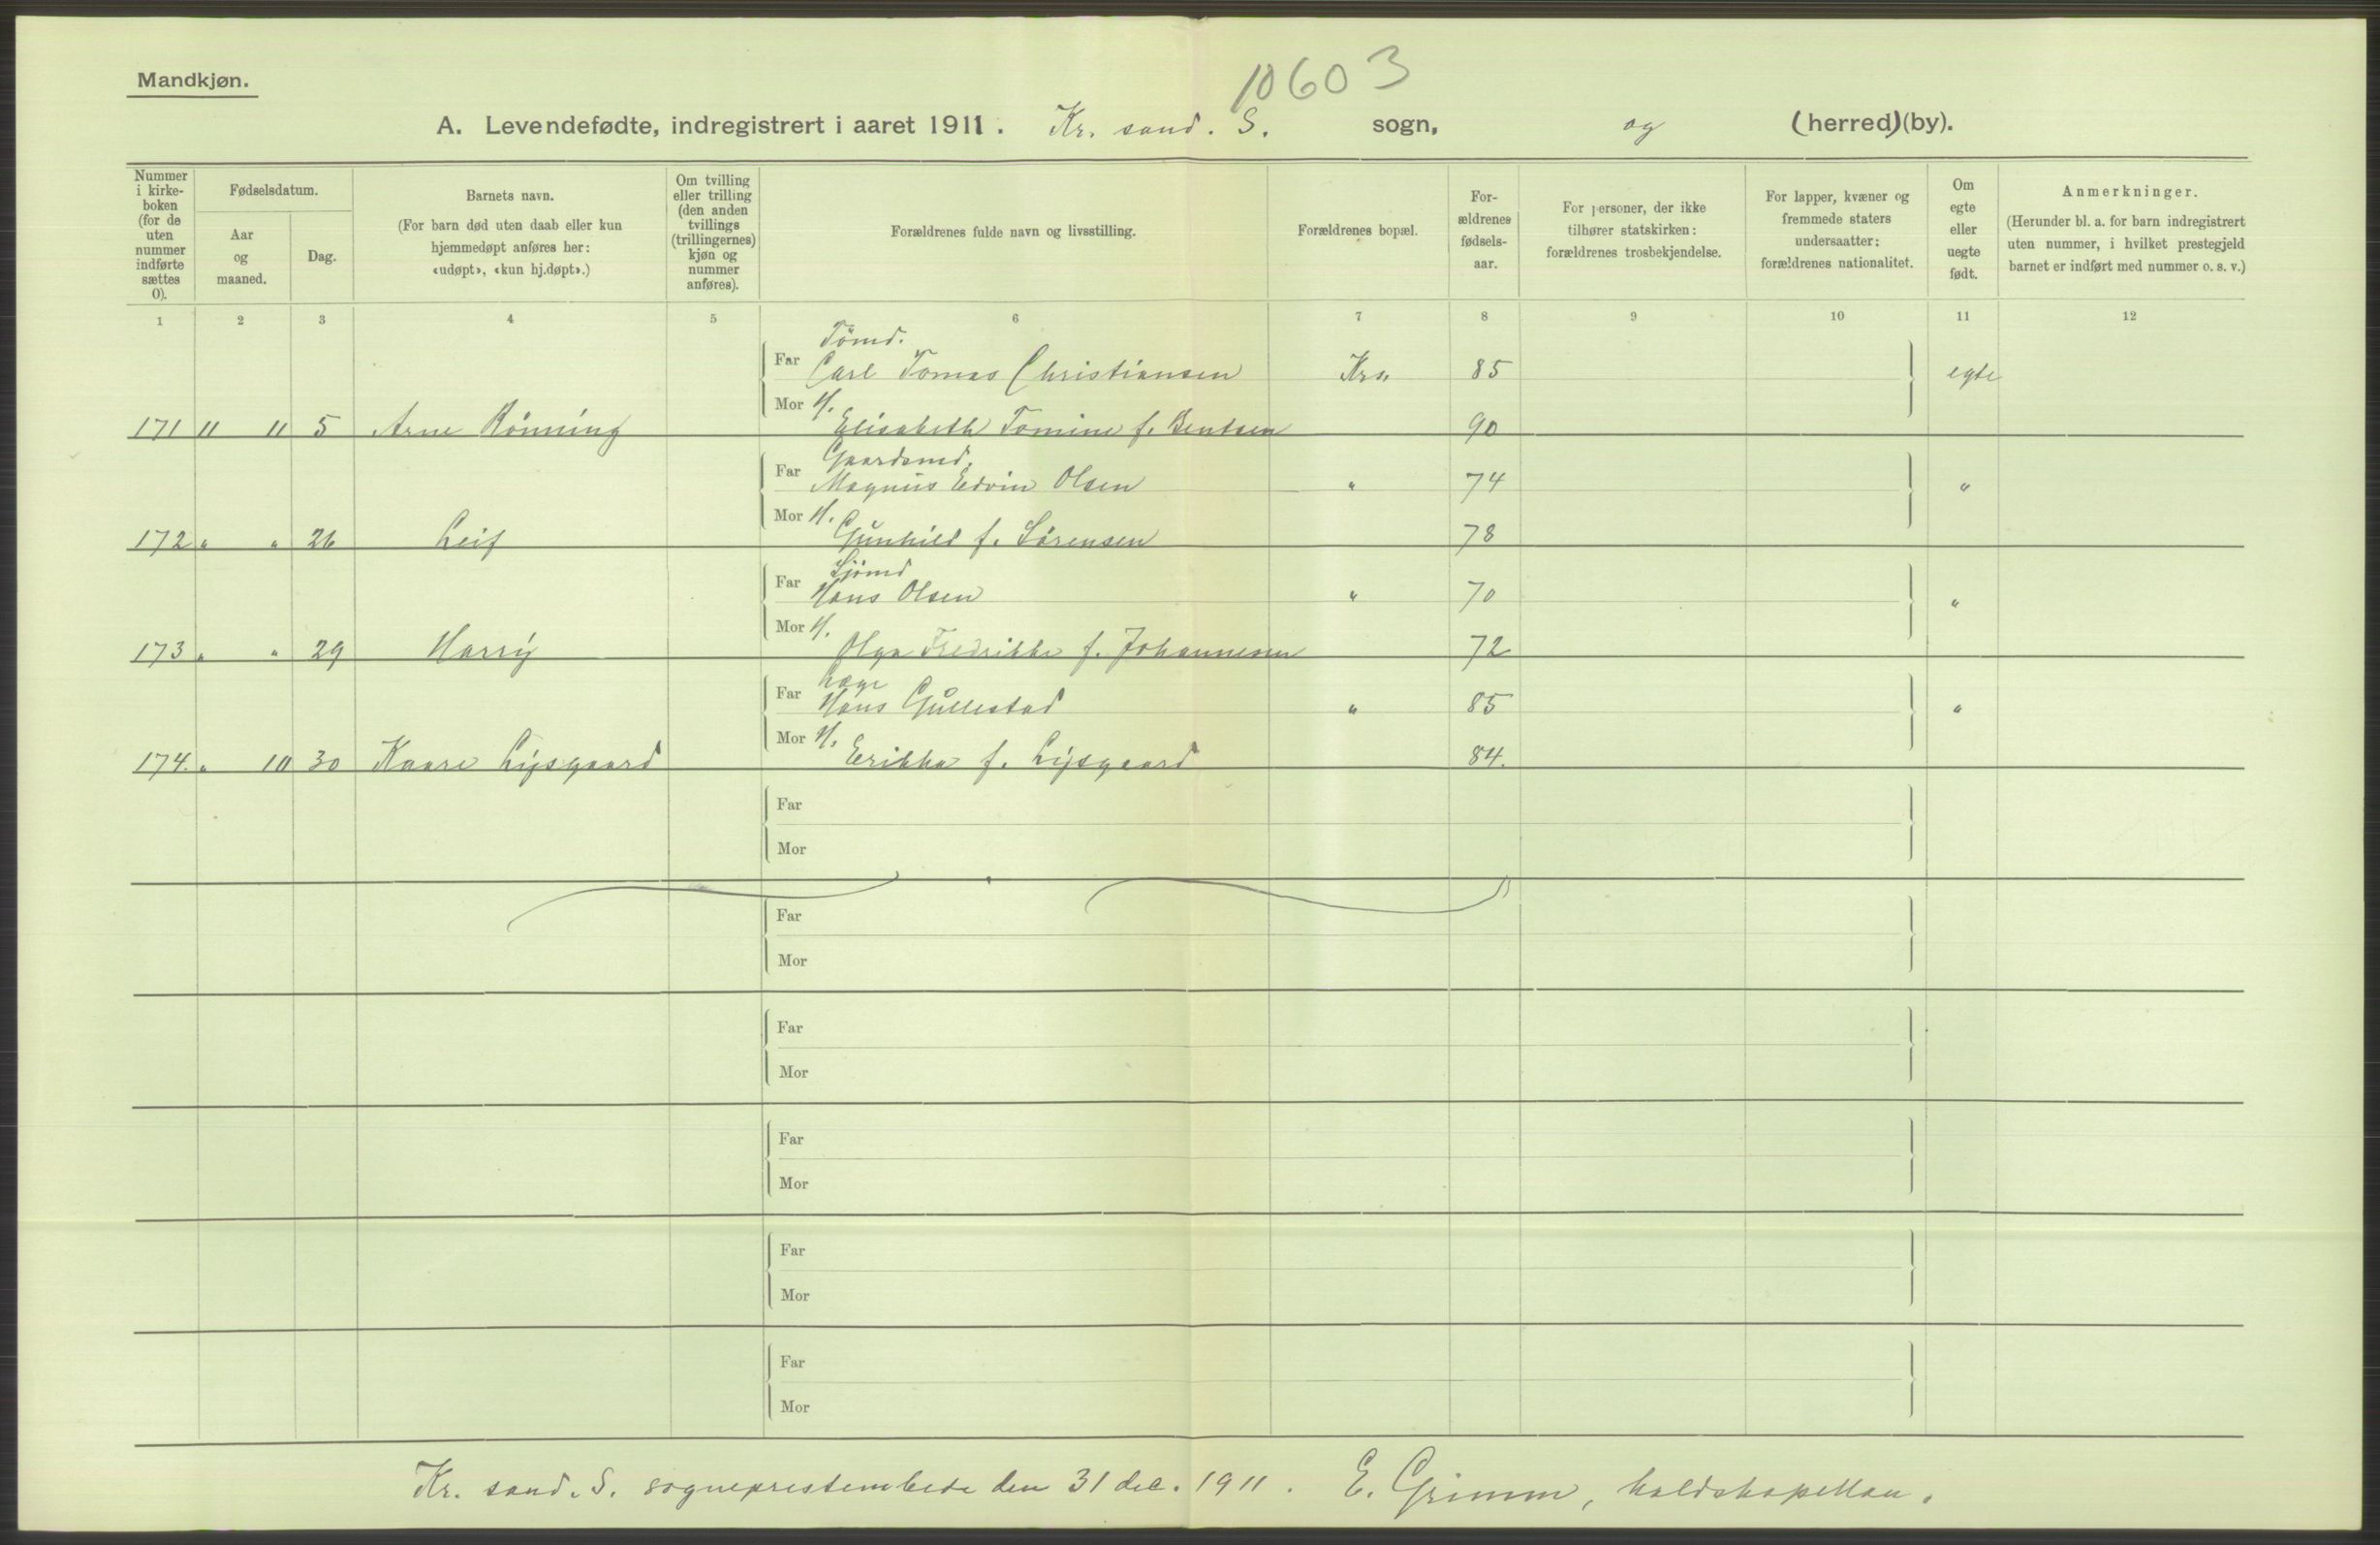 10603
Mandkjøn.
A. Levendefødte, indregistrert i aaret 1911. Kr. sand. S. sogn, og (herred)(by).
Nummer i kirke- boken (for de uten nummer indførte sættes 0).
Fødselsdatum.
Aar og maaned.
Dag.
Barnets navn.
(For barn død uten daab eller kun
hjemmedøpt anføres her:
«udøpt», «kun hj.døpt».)
Om tvilling eller trilling (den anden tvillings (trillingernes) kjøn og nummer anføres).
Forældrenes fulde navn og livsstilling.
Forældrenes bopæl.
For- ældrenes fødsels- aar.
For personer, der ikke
tilhører statskirken:
forældrenes trosbekjendelse.
For lapper, kvæner og
fremmede staters
undersaatter:
forældrenes nationalitet.
Om egte eller uegte født.
Anmerkninger.
(Herunder bl. a. for barn indregistrert
uten nummer, i hvilket prestegjeld
barnet er indført med nummer o. s. v.)
1 2 3 4 5 6 7 8 9 10 11 12
Tømd.
Far Carl Tomas Christiansen Krs. 85 egte
Mor H.
171 11 11 5 Arne Rönning Elisabeth Tomine f. Bentsen 90
Gaardsmd.
Far Magnus Edvin Olsen " 74 "
Mor H.
172 " " 26 Leif Gunhild f. Sörensen 78
Sjömd
Far Hans Olsen " 70 "
Mor H.
173 " " 29 Harry Olga Fredrikke f. Johannesen 72
Læge
Far Hans Gullestad " 85 "
Mor H.
174. " 10 30 Kaare Lysgaard Erikka f. Lysgaard 84.
Far
Mor
Far
Mor
Far
Mor
Far
Mor
Far
Mor
Far
Mor
Kr. sand. S. sogneprestembede den 31 dec. 1911. E. Grimm, holdskapellan.